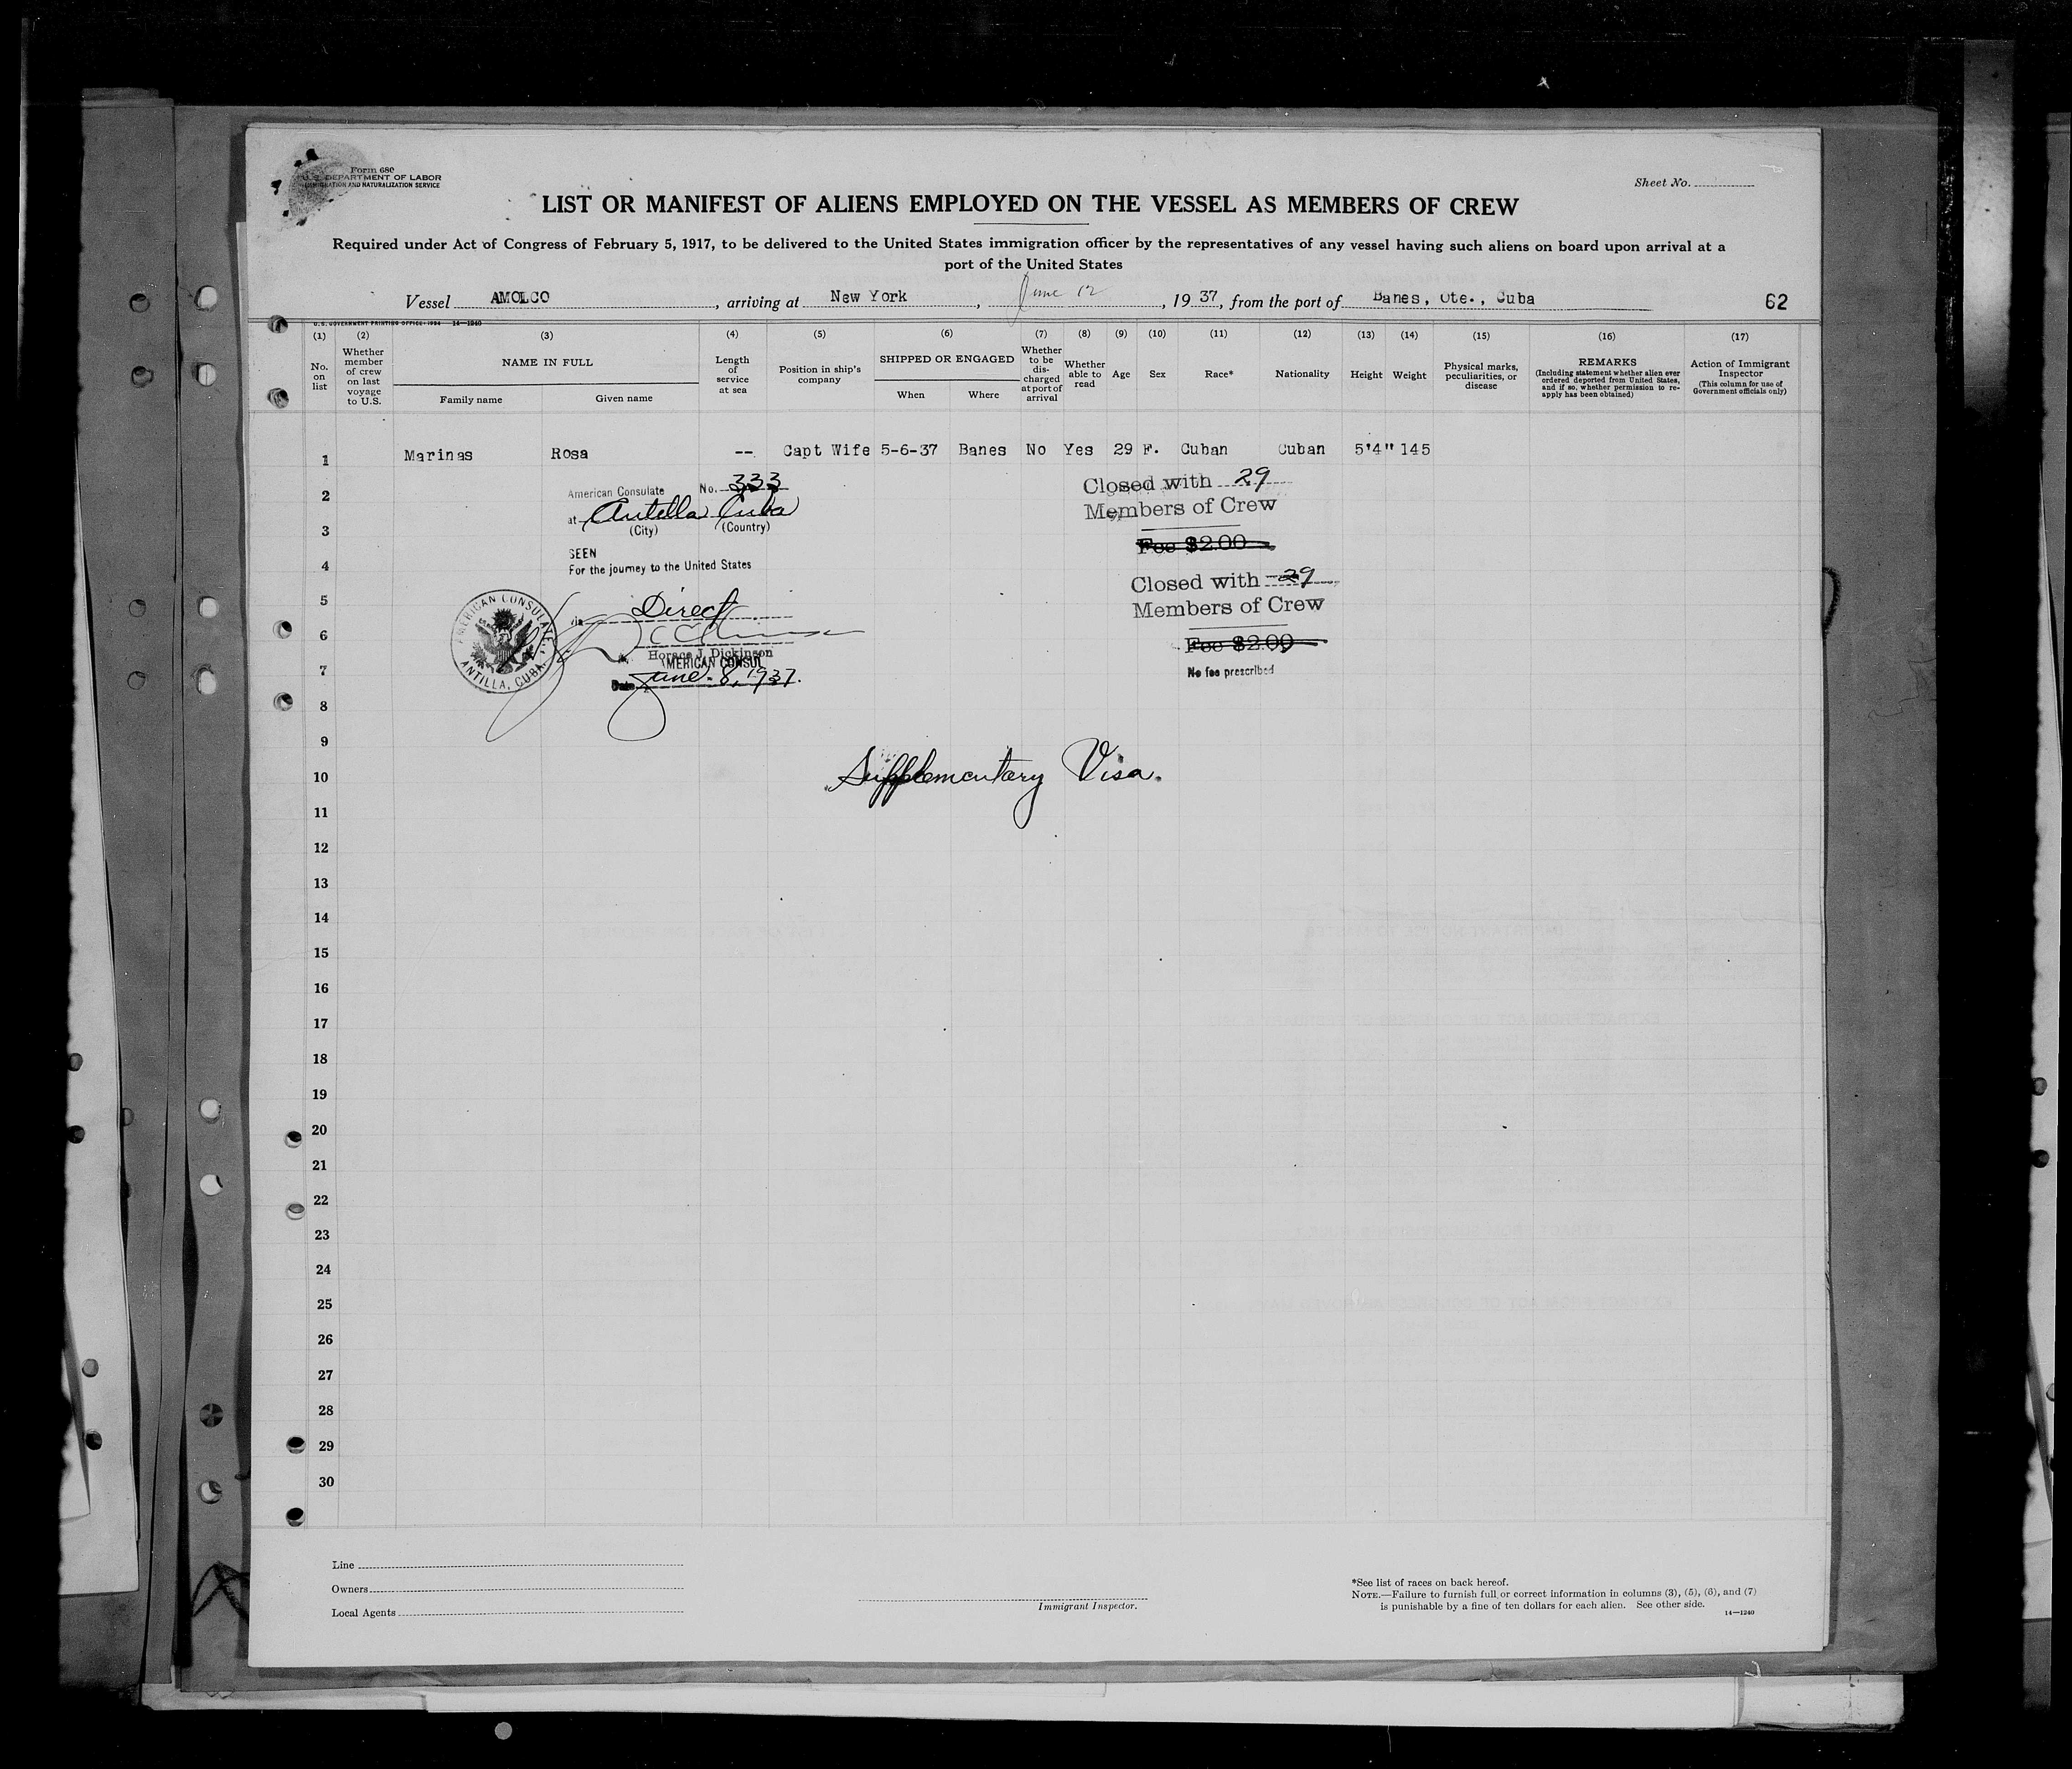 Form 680
U. S. DEPARTMENT OF LABOR
IMMIGRATION AND NATURALIZATION SERVICE
Sheet No.
LIST OR MANIFEST OF ALIENS EMPLOYED ON THE VESSEL AS MEMBERS OF CREW
Required under Act of Congress of February 5, 1917, to be delivered to the United States immigration officer by the representatives of any vessel having such aliens on board upon arrival at a
port of the United States
Vessel AMOLCO, arriving at New York, June 12, 1937, from the port of Banes, Ote., Cuba 62
U. S. GOVERNMENT PRINTING OFFICE: 1934 14—1240
(1) (2) (3) (4) (5) (6) (7) (8) (9) (10) (11) (12) (13) (14) (15) (16) (17)
No. on list
Whether member of crew on last voyage to U.S.
NAME IN FULL
Family name Given name
Length of service at sea
Position in ship's company
SHIPPED OR ENGAGED
When Where
Whether to be discharged at port of arrival
Whether able to read
Age Sex Race* Nationality Height Weight
Physical marks, peculiarities, or disease
REMARKS
(Including statement whether alien ever ordered deported from United States, and if so, whether permission to re-apply has been obtained)
Action of Immigrant Inspector
(This column for use of Government officials only)
1 Marinas Rosa -- Capt Wife 5-6-37 Banes No Yes 29 F. Cuban Cuban 5'4" 145
2
3
4
5
6
7
8
9
10
11
12
13
14
15
16
17
18
19
20
21
22
23
24
25
26
27
28
29
30
American Consulate No. 333
at Antilla Cuba
(City) (Country)
SEEN
For the journey to the United States
via Direct
Horace J. Dickinson
AMERICAN CONSUL
Date June 8, 1937.
AMERICAN CONSULATE
ANTILLA, CUBA.
Closed with 29
Members of Crew
Fee $2.00
Closed with 29
Members of Crew
Fee $2.00
No fee prescribed
Supplementary Visa.
Line
Owners
Local Agents
Immigrant Inspector.
*See list of races on back hereof.
NOTE.—Failure to furnish full or correct information in columns (3), (5), (6), and (7)
is punishable by a fine of ten dollars for each alien. See other side.
14—1240